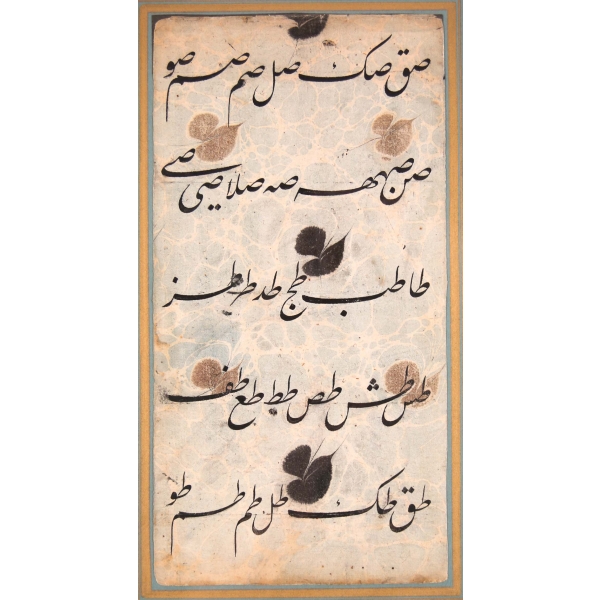 صق صک صل صم صم صو
صن صهه صه صلا صی صی
طا طب طج طد طر طز
طس طش طص طط طع طف
طق طک طل طم طم طو